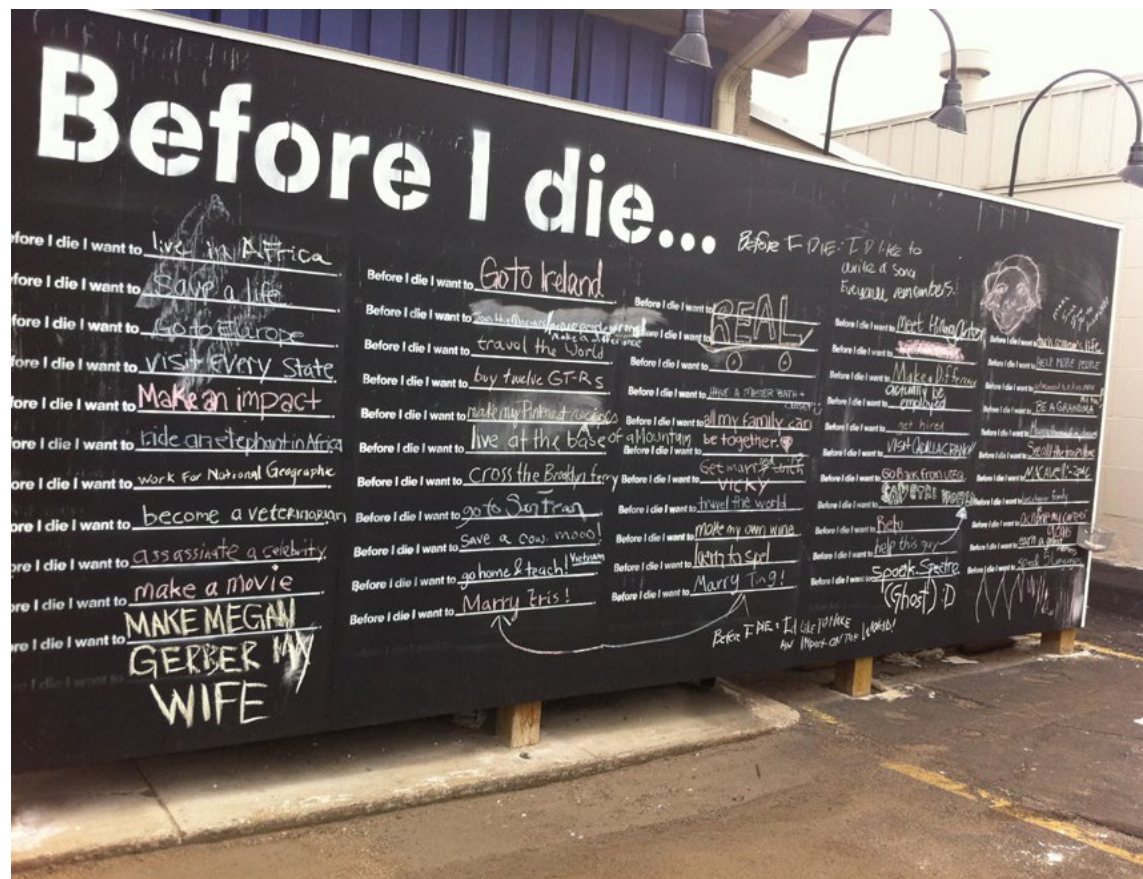 Before I die...
fore I die I want to live in Africa
fore I die I want to save a life
fore I die I want to Go to Europe
fore I die I want to visit Every State
ore I die I want to Make an impact
ore I die I want to ride an elephant in Africa
ore I die I want to work For National Geographic
ore I die I want to become a veterinarian
ore I die I want to assassinate a celebrity
ore I die I want to make a movie
ore I die I want to MAKE MEGAN
re I die I want to GERBER MY
WIFE
Before I die I want to Go to Ireland
Before I die I want to Make a difference
Before I die I want to travel the World
Before I die I want to buy twelve GT-Rs
Before I die I want to make my Pintrest recipes
Before I die I want to live at the base of a Mountain
Before I die I want to cross the Brooklyn ferry
Before I die I want to go to San Fran
Before I die I want to save a cow. mooo!
Before I die I want to go home & teach! Vietnam
Before I die I want to Marry Eris!
Before I die I want to REAL
Before I die I want to
Before I die I want to
Before I die I want to HAVE A MASTER BATH +
Before I die I want to all my family can
Before I die I want to be together.
Before I die I want to Get mayrr
VICKY
Before I die I want to travel the world
Before I die I want to make my own wine
Before I die I want to learn to spel
Before I die I want to Marry Ting!
Before I DIE: I'D like to
write a song
Everyone remembers!
Before I die I want to Meet
Before I die I want to
Before I die I want to Make a Difference
Before I die I want to actually be
employed
Before I die I want to get hired
Before I die I want to VISIT
Before I die I want to GO BACK
Before I die I want to
Before I die I want to Beto
Before I die I want to help this guy
Before I die I want to speak. Spectre
(Ghost) :D
Before I DIE: I'd LIKE TO
AN IMPACT ON THE WORLD!
Before I die I want to life
Before I die I want to HELP MORE PEOPLE
Before I die I want to
Before I die I want to BE A GRANDMA
Before I die I want to
Before I die I want to
Before I die I want to
Before I die I want to family
Before I die I want to achieve my career
goals
Before I die I want to earn a
Before I die I want to speak 5